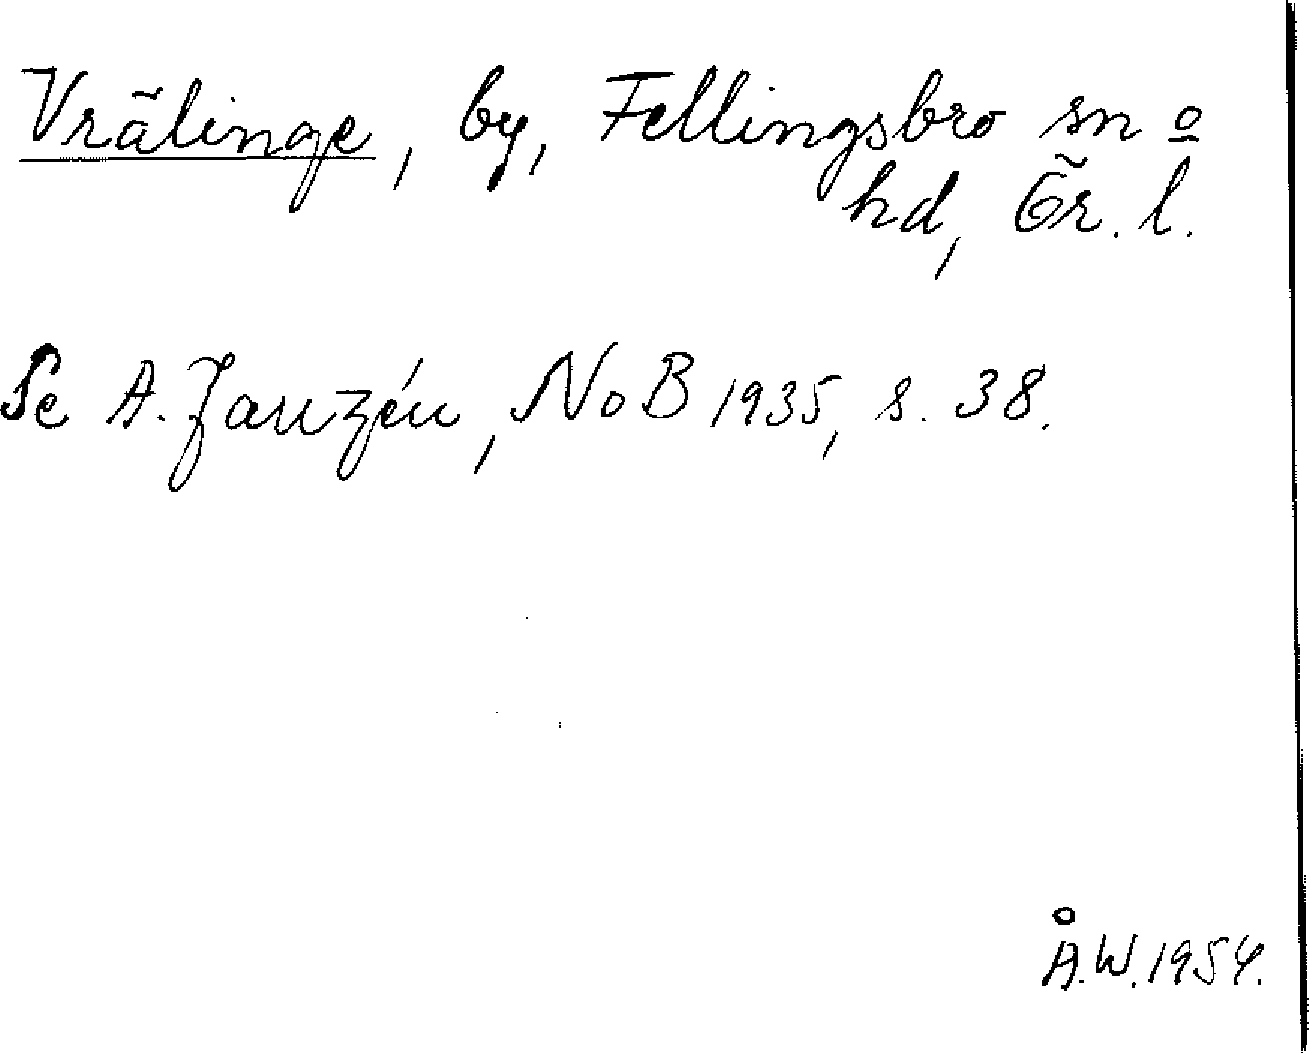 Vrälinge, by, Fellingsbro sn o
hd, Ör. l.
Se A. Janzén, NoB 1935, s. 38.
Å.W. 1954.